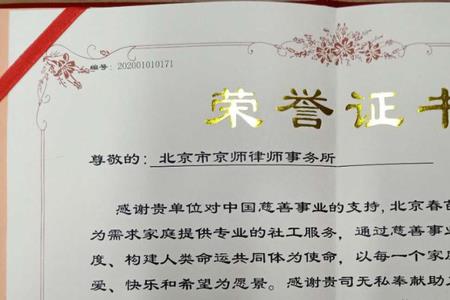 编号: 202001010171
荣誉证书
尊敬的: 北京市京师律师事务所
感谢贵单位对中国慈善事业的支持, 北京春
为需求家庭提供专业的社工服务, 通过慈善事业
度、构建人类命运共同体为使命, 以每一个家
爱、快乐和希望为愿景。感谢贵司无私奉献助